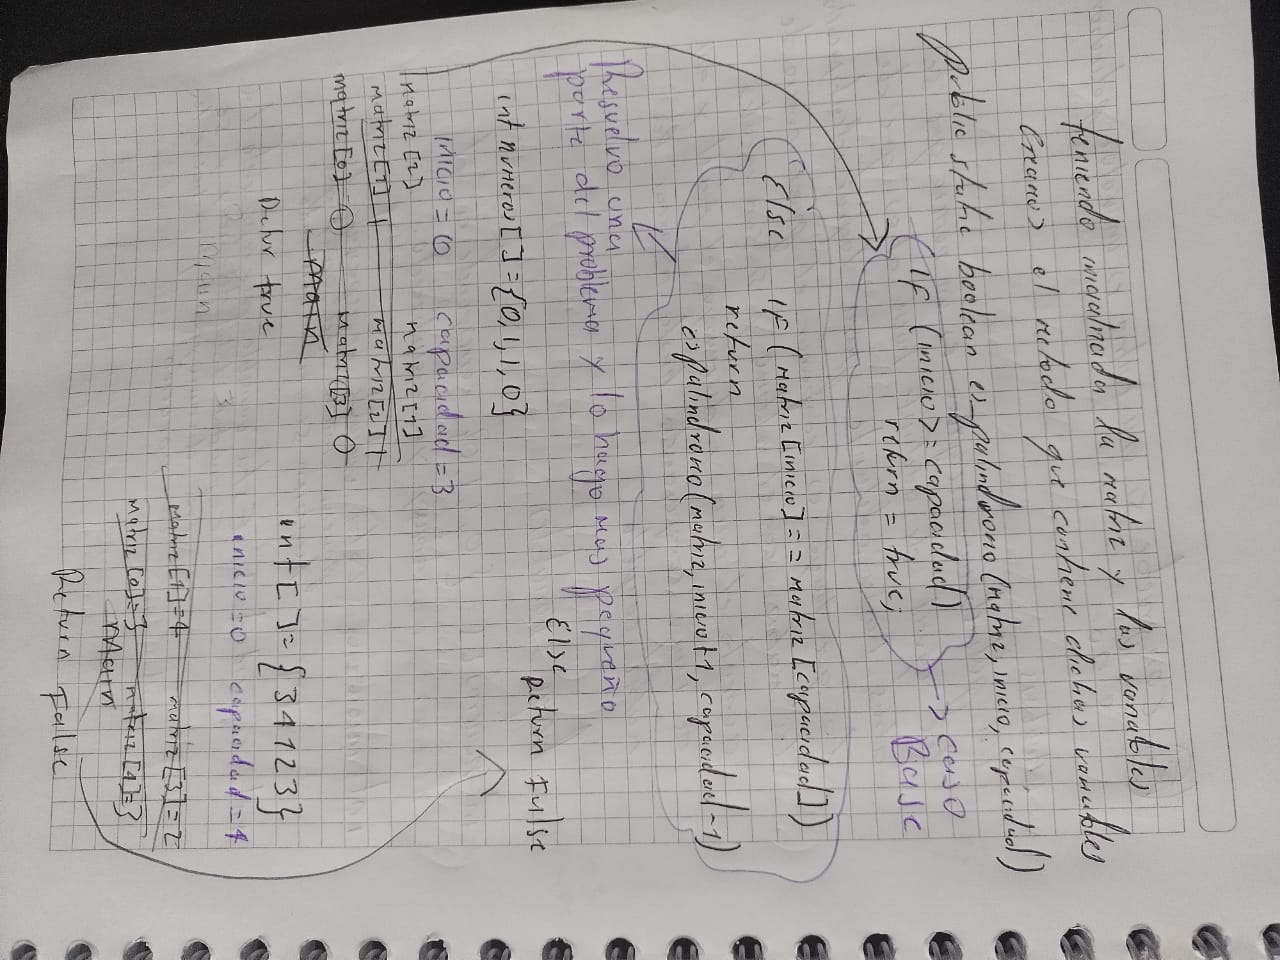 teniendo inicializada la matriz y las variables
Creamos el metodo que contiene dichas variables
public static boolean es_palindromo (matriz, inicio, capacidad)
if (inicio >= capacidad)
return = true;
→ caso
Base
Else if (matriz [inicio] == matriz [capacidad])
return
es palindromo (matriz, inicio+1, capacidad-1)
Resuelvo una
parte del problema y lo hago mas pequeño
Else
Return False
int numeros [] = {0,1,1,0}
inicio = 0 capacidad = 3
matriz [2] matriz [1]
matriz [1] 1 matriz [2] 1
matriz [0] 0 matriz [3] 0
Main
Retur true
Main 3
int [] = {3 4 1 2 3}
inicio = 0 capacidad = 4
matriz [1]=4 matriz [3]=2
matriz [0]=3 matriz [4]=3
Main
Return False